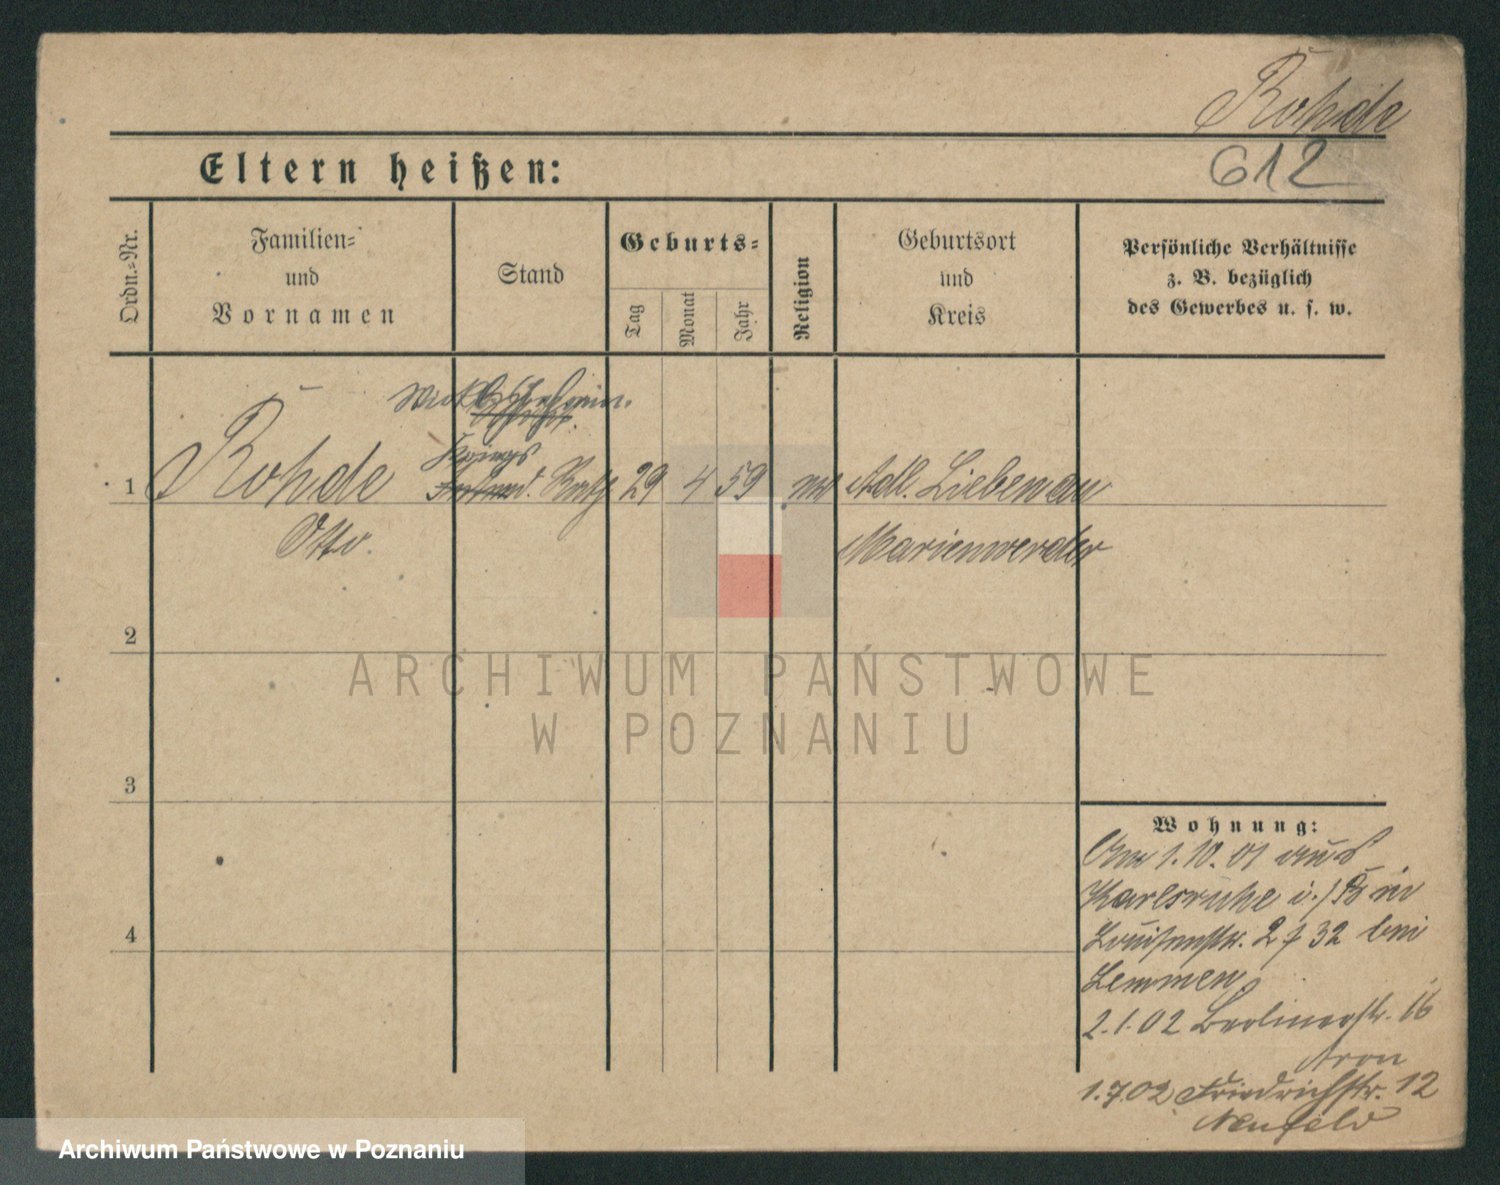 Rohde
612
Eltern heißen:
Ordn.-Nr.
Familien-
und
Vornamen
Stand
Geburts-
Tag
Monat
Jahr
Religion
Geburtsort
und
Kreis
Persönliche Verhältnisse
z. B. bezüglich
des Gewerbes u. s. w.
1
Rohde
Otto.
Kriegs
29 4 59
Adl. Liebenau
Marienwerder
2
3
4
Wohnung:
Am 1.10.01 aus
Karlsruhe i./B in
Louisenstr. 2 f 32 bei
Lemmen
2.1.02 Berlinerstr. 16
Aron
1.7.02 Friedrichstr. 12
Neufeld
ARCHIWUM PAŃSTWOWE
W POZNANIU
Archiwum Państwowe w Poznaniu